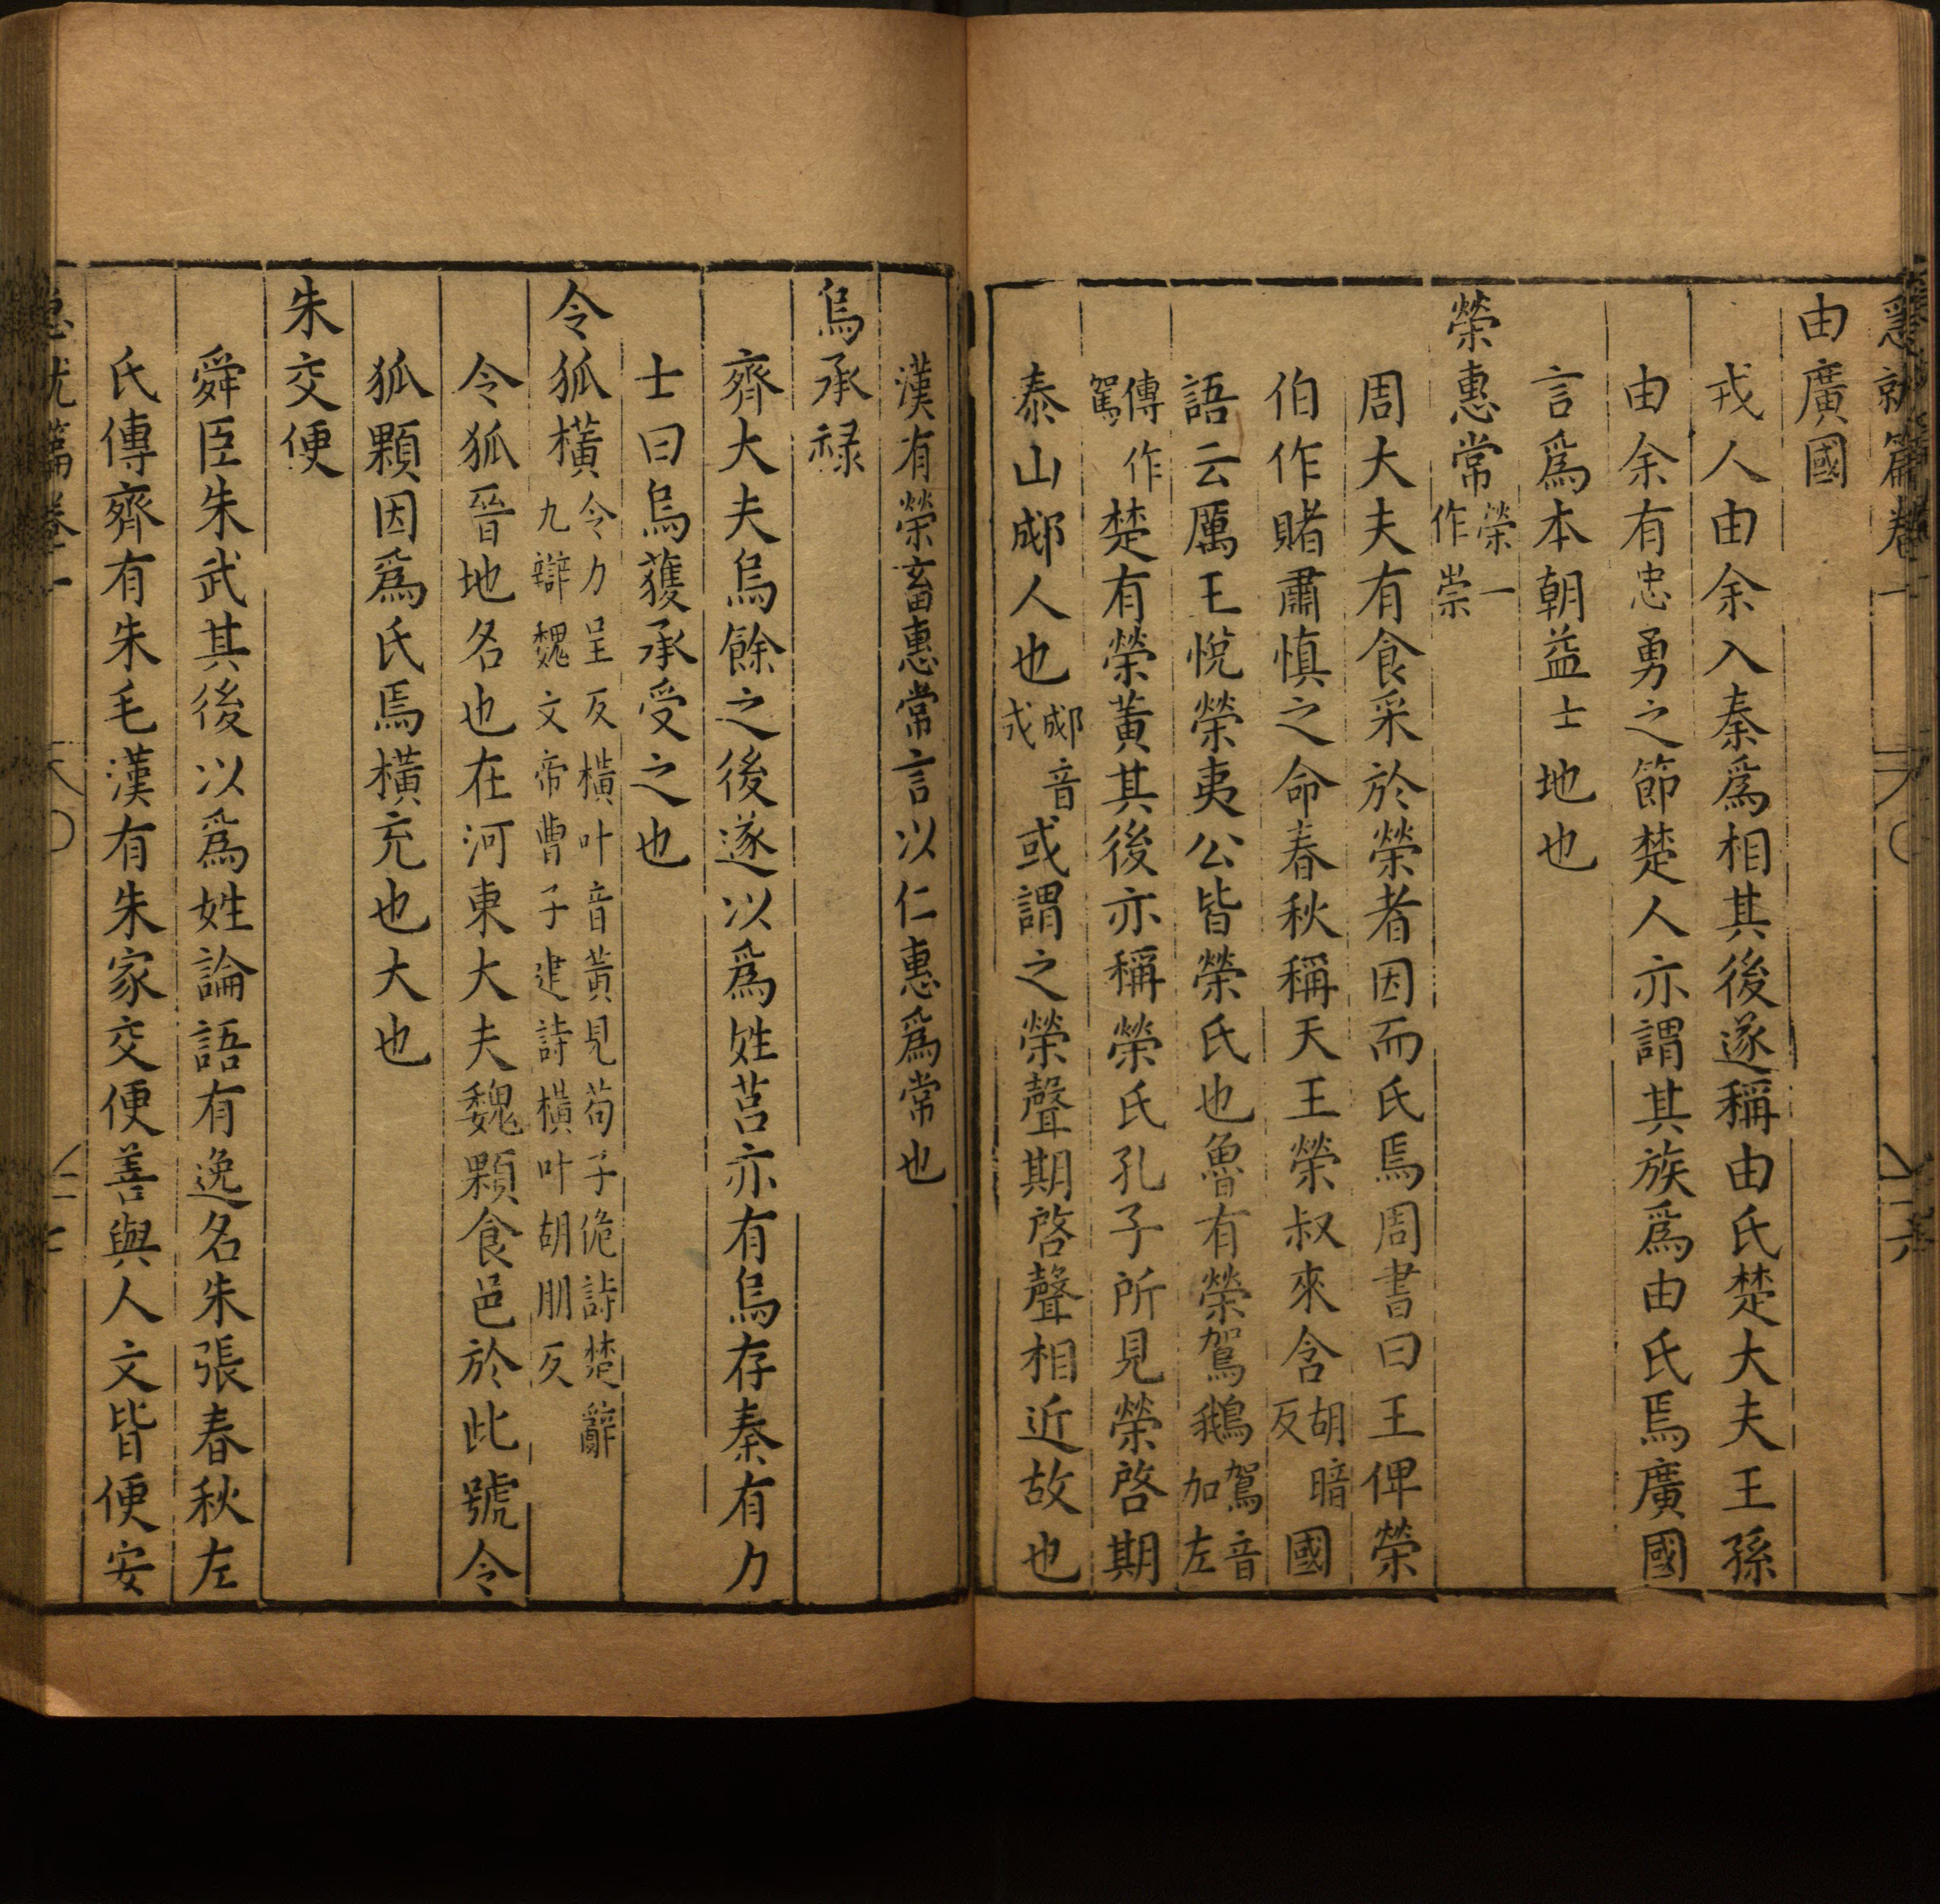 急就篇卷一
由廣國
戎人由余入秦為相其後遂稱由氏楚大夫王孫
由余有忠勇之節楚人亦謂其族為由氏焉廣國
言為本朝益士地也
榮惠常榮一作崇
周大夫有食采於榮者因而氏焉周書曰王俾榮
伯作賭肅慎之命春秋稱天王榮叔來含胡暗反國
語云厲王悅榮夷公皆榮氏也魯有榮鴐鵝鴐音加左
傳作駕楚有榮黃其後亦稱榮氏孔子所見榮啓期
泰山郕人也郕音成或謂之榮聲期啓聲相近故也
漢有榮畜惠常言以仁惠為常也
烏承祿
齊大夫烏餘之後遂以為姓莒亦有烏存秦有力
士曰烏獲承受之也
令狐橫令力呈反橫叶音黃見荀子佹詩楚辭九辯魏文帝曹子建詩橫叶胡朋反
令狐晉地名也在河東大夫魏顆食邑於此號令
狐顆因為氏焉橫充也大也
朱交便
舜臣朱武其後以為姓論語有逸名朱張春秋左
氏傳齊有朱毛漢有朱家交便善與人交皆便安
急就篇卷一